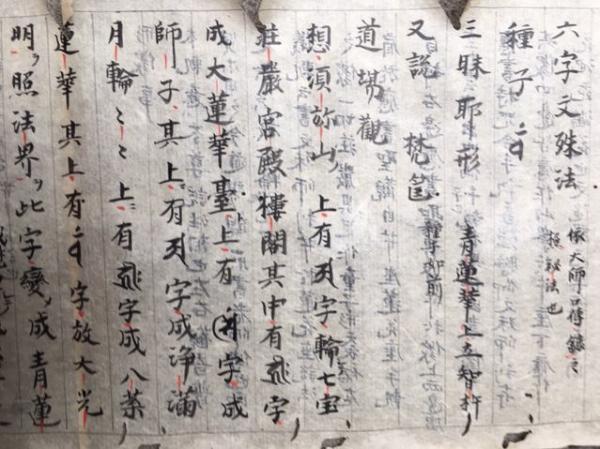 六字文殊法
大師口傳錄之
極秘法也
種子
三昧耶形 青蓮華上立智杵
又説 梵篋
道場觀
想須弥山上有字輪七宝
莊嚴宮殿樓閣其中有字
成大蓮華臺上有字成
師子其上有字成淨滿
月輪〻上有字成八葉
蓮華其上有字放大光
明照法界此字變成青蓮